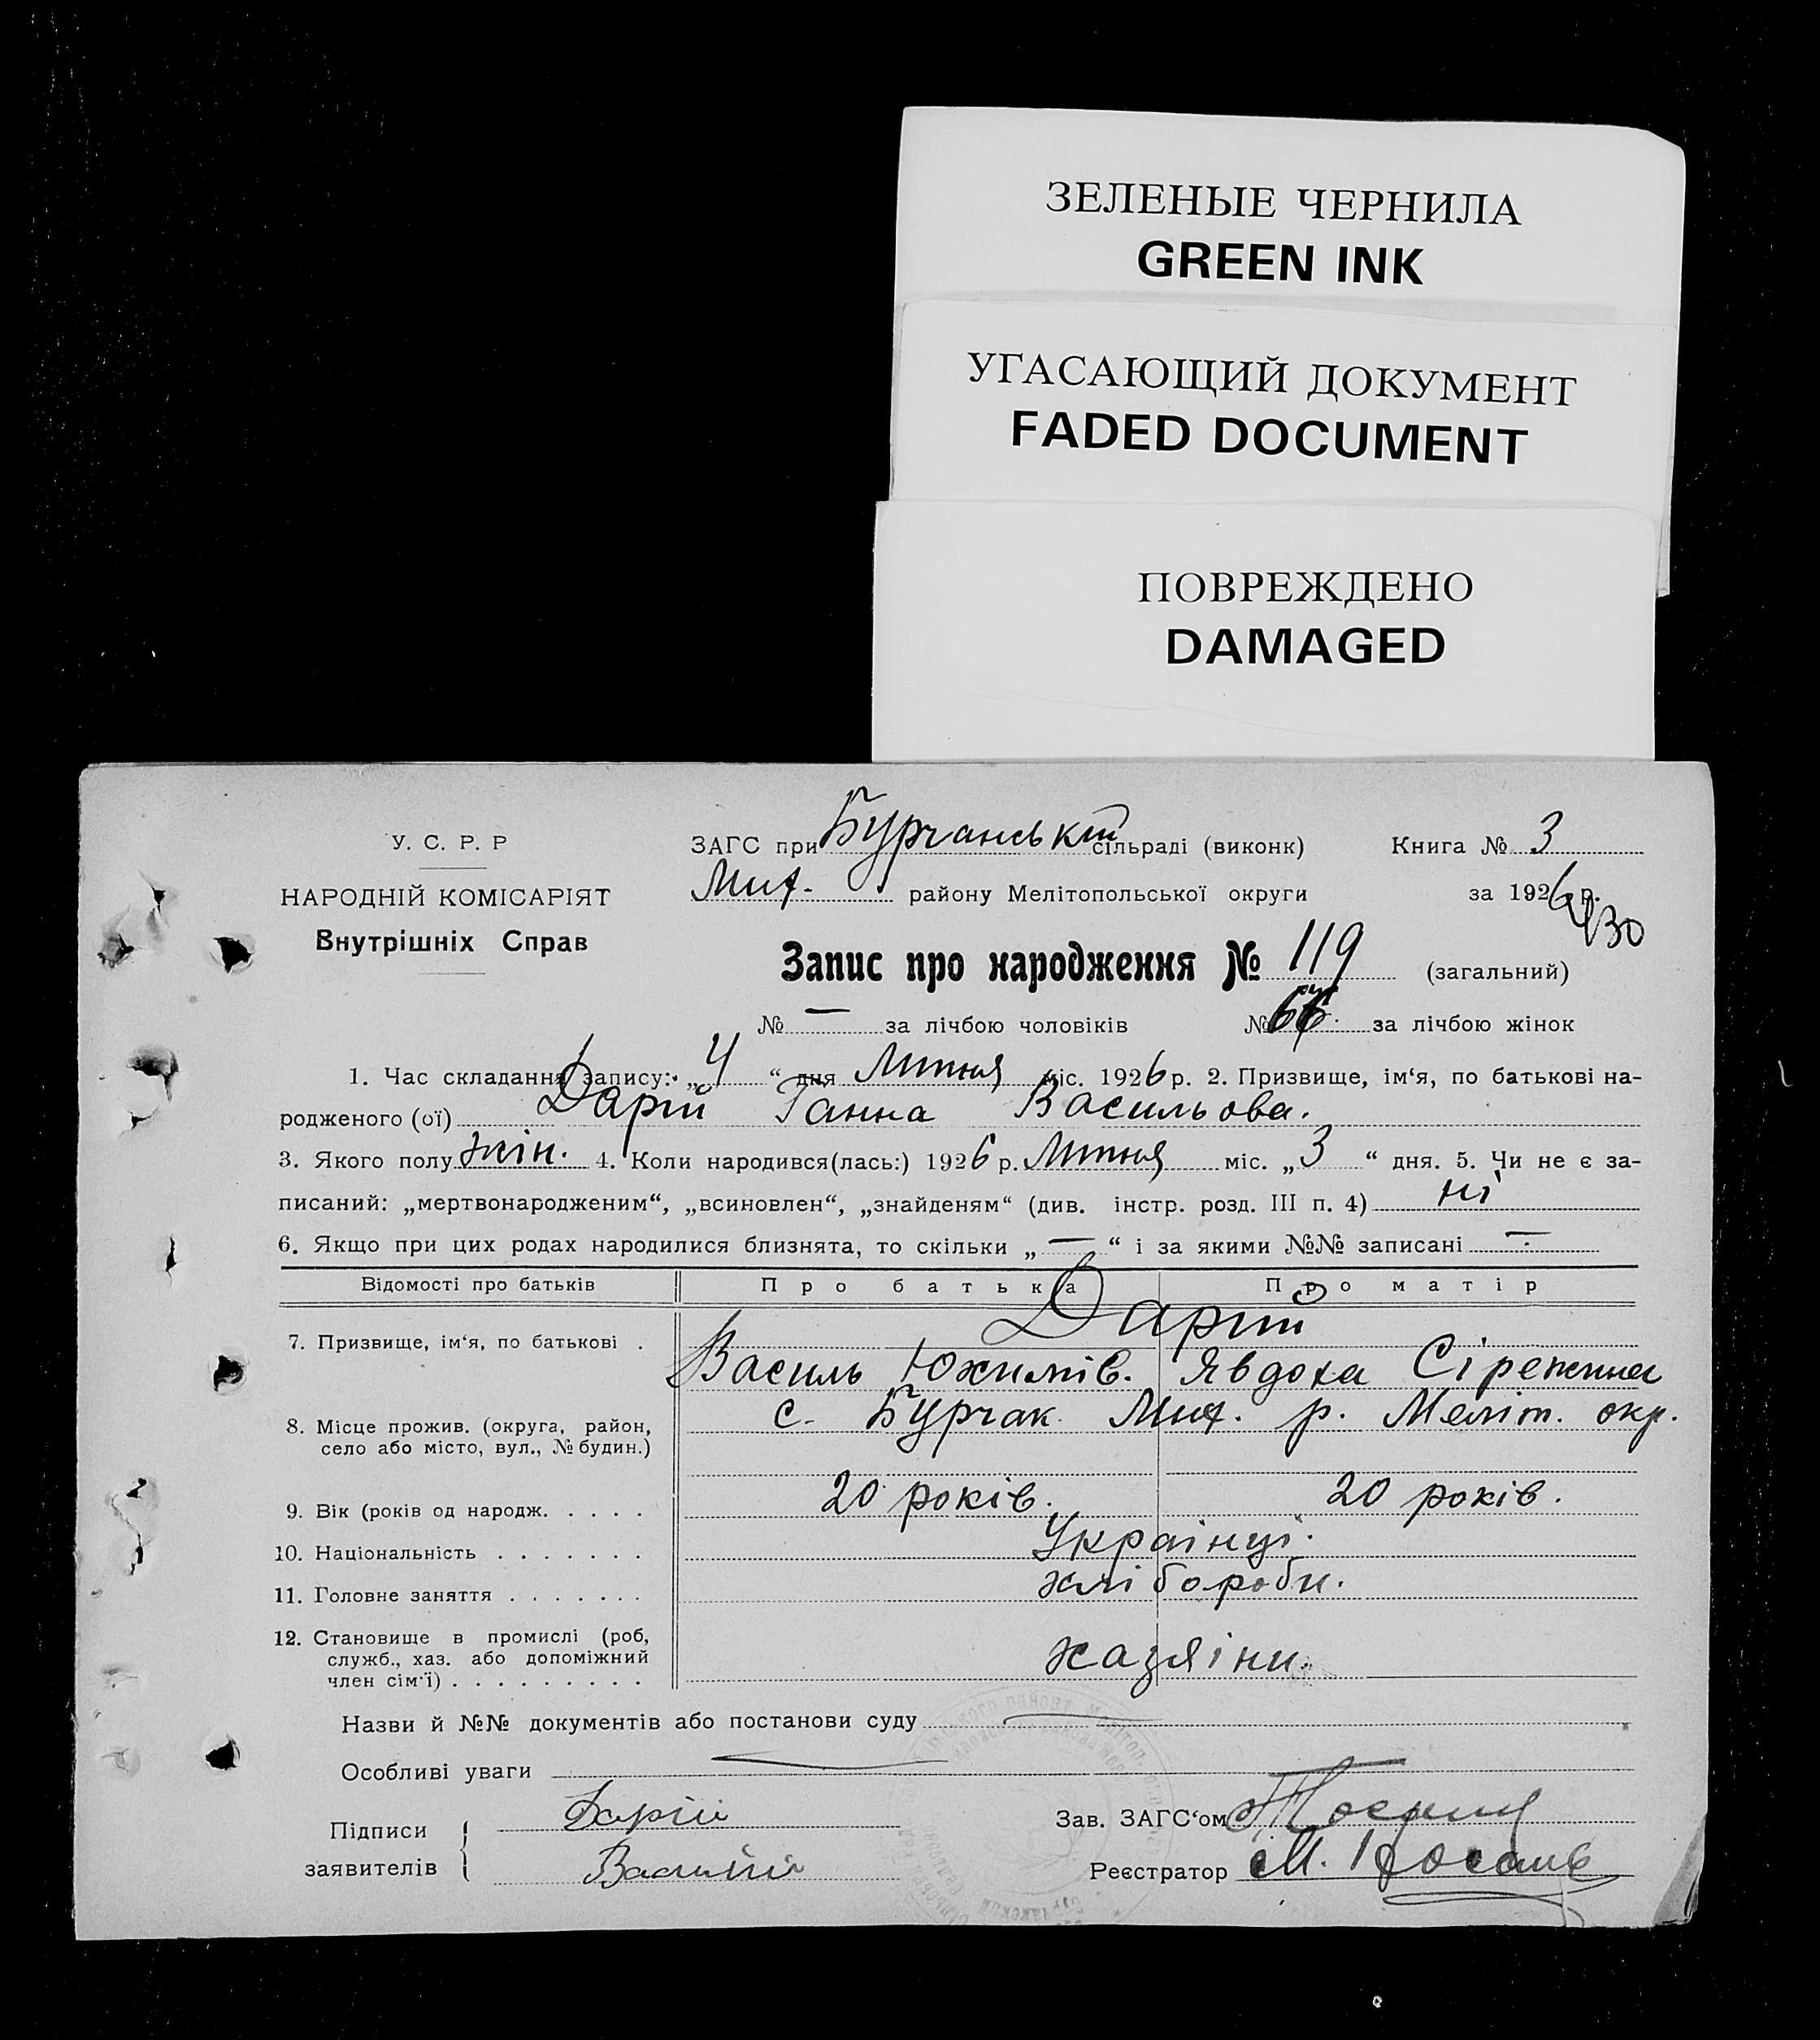 ЗЕЛЕНЫЕ ЧЕРНИЛА
GREEN INK
УГАСАЮЩИЙ ДОКУМЕНТ
FADED DOCUMENT
ПОВРЕЖДЕНО
DAMAGED
У. С. Р. Р
НАРОДНІЙ КОМІСАРІЯТ
Внутрішніх Справ
ЗАГС при Бурчанській сільраді (виконк) Книга № 3
Мих. району Мелітопольської округи за 1926 р.
430
Запис про народження № 119 (загальний)
№ — за лічбою чоловіків № за лічбою жінок
1. Час складання запису: „4“ дня Липня міс. 1926 р. 2. Призвище, ім‘я, по батькові на-
родженого (ої) Дарій Ганна Васильова.
3. Якого полу жін. 4. Коли народився(лась:) 1926 р. Липня міс. „3“ дня. 5. Чи не є за-
писаний: „мертвонародженим“, „всиновлен“, „знайденям“ (див. інстр. розд. III п. 4) ні
6. Якщо при цих родах народилися близнята, то скільки „—“ і за якими №№ записані —.
Відомості про батьків Про батька Про матір
7. Призвище, ім‘я, по батькові . Дарій
Василь Юхимів. Явдоха
8. Місце прожив. (округа, район, с. Бурчак Мих. р. Меліт. окр.
село або місто, вул., № будин.)
9. Вік (років од народж. . . . . 20 років. 20 років.
10. Національність . . . . . . . Українці.
11. Головне заняття . . . . . . . хлібороби.
12. Становище в промислі (роб,
служб., хаз. або допоміжний хазяїни.
член сім‘ї) . . . . . . . . .
Назви й №№ документів або постанови суду —
Особливі уваги —
Підписи Дарій Зав. ЗАГС‘ом
заявителів Реєстратор М.